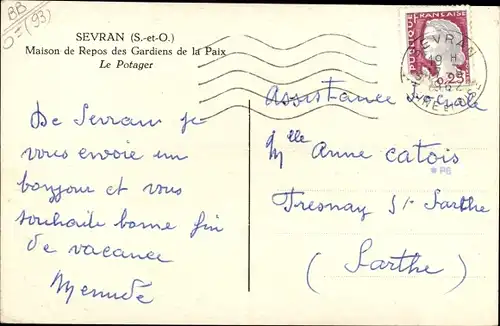 BB
0=(93)
SEVRAN (S.-et-O.)
Maison de Repos des Gardiens de la Paix
Le Potager
REPUBLIQUE FRANÇAISE
0,25
SEVRAN
19 H
De Sevran je
vous envoie un
bonjour et vous
souhaite bonne fin
de vacance
Assistance Sociale
Mlle Anne Catois
P6
Fresnay S/ Sarthe
(Sarthe)